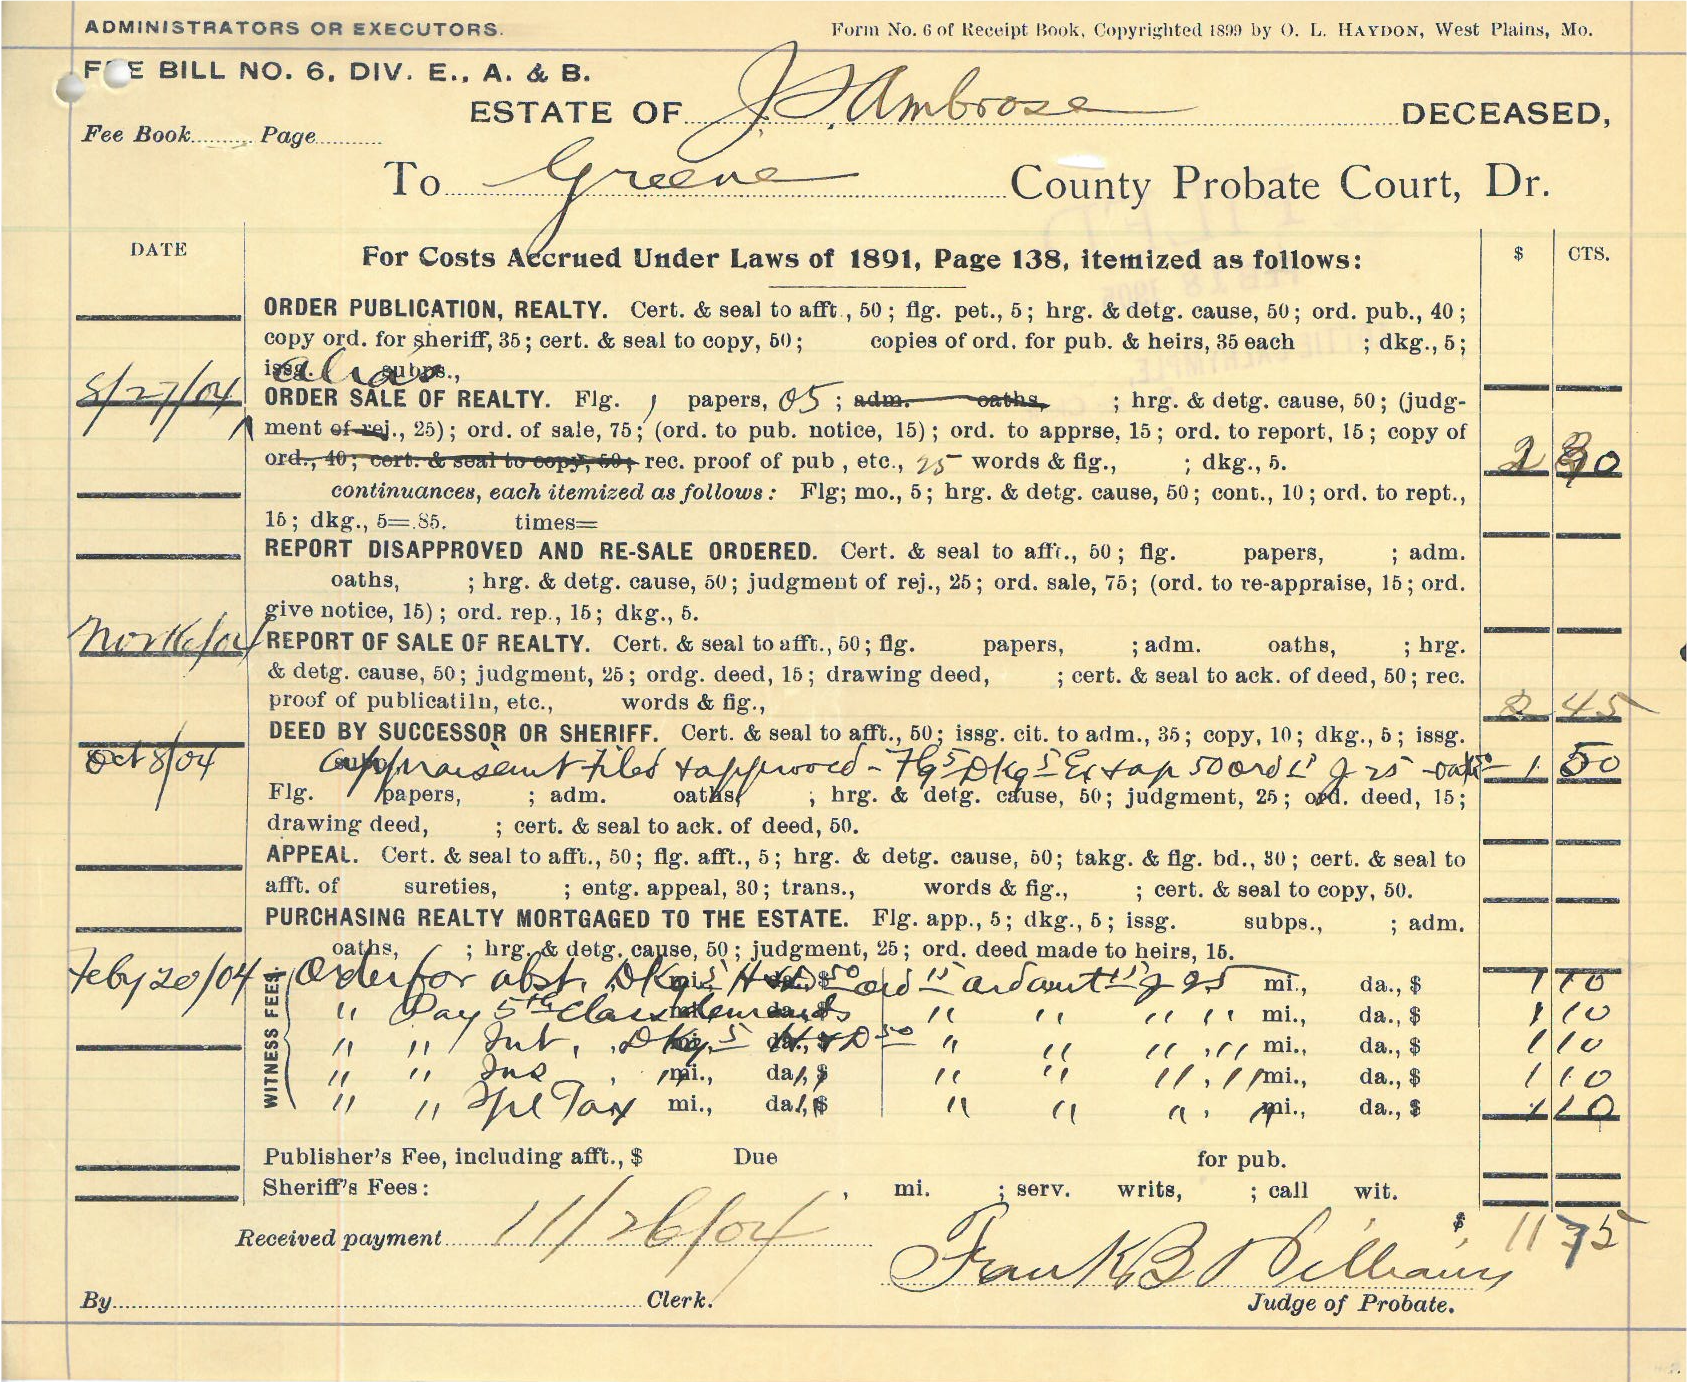 ADMINISTRATORS OR EXECUTORS.
Form No. 6 of Receipt Book, Copyrighted 1899 by O. L. HAYDON, West Plains, Mo.
FEE BILL NO. 6, DIV. E., A. & B.
ESTATE OF J S Ambrose DECEASED,
Fee Book Page
To Greene County Probate Court, Dr.
DATE
For Costs Accrued Under Laws of 1891, Page 138, itemized as follows:
$ CTS.
ORDER PUBLICATION, REALTY. Cert. & seal to afft., 50; flg. pet., 5; hrg. & detg. cause, 50; ord. pub., 40;
copy ord. for sheriff, 35; cert. & seal to copy, 50; copies of ord. for pub. & heirs, 35 each ; dkg., 5;
issg. subps.,
alias
8/27/04 ORDER SALE OF REALTY. Flg. 1 papers, 05; adm. oaths, ; hrg. & detg. cause, 50; (judg-
ment of rej., 25); ord. of sale, 75; (ord. to pub. notice, 15); ord. to apprse, 15; ord. to report, 15; copy of
ord., 40; cert. & seal to copy, 50; rec. proof of pub, etc., 25 words & fig., ; dkg., 5. 2
continuances, each itemized as follows: Flg; mo., 5; hrg. & detg. cause, 50; cont., 10; ord. to rept.,
15; dkg., 5=.85. times=
REPORT DISAPPROVED AND RE-SALE ORDERED. Cert. & seal to afft., 50; flg. papers, ; adm.
oaths, ; hrg. & detg. cause, 50; judgment of rej., 25; ord. sale, 75; (ord. to re-appraise, 15; ord.
give notice, 15); ord. rep., 15; dkg., 5.
Nov 16/04 REPORT OF SALE OF REALTY. Cert. & seal to afft., 50; flg. papers, ; adm. oaths, ; hrg.
& detg. cause, 50; judgment, 25; ordg. deed, 15; drawing deed, ; cert. & seal to ack. of deed, 50; rec.
proof of publicatiln, etc., words & fig., 2 45
DEED BY SUCCESSOR OR SHERIFF. Cert. & seal to afft., 50; issg. cit. to adm., 35; copy, 10; dkg., 5; issg.
subp
Oct 8/04 appraisemt filed & approved - Flg 5 Dkg 5 Ex & ap 50 ord 15 J 25 - 1 50
Flg. papers, ; adm. oaths, ; hrg. & detg. cause, 50; judgment, 25; ord. deed, 15;
drawing deed, ; cert. & seal to ack. of deed, 50.
APPEAL. Cert. & seal to afft., 50; flg. afft., 5; hrg. & detg. cause, 50; takg. & flg. bd., 30; cert. & seal to
afft. of sureties, ; entg. appeal, 30; trans., words & fig., ; cert. & seal to copy, 50.
PURCHASING REALTY MORTGAGED TO THE ESTATE. Flg. app., 5; dkg., 5; issg. subps., ; adm.
oaths, ; hrg. & detg. cause, 50; judgment, 25; ord. deed made to heirs, 15.
WITNESS FEES.
Feby 20/04 - Order for abst, Dkg 5 H & D 50 ord 15 J 25 mi., da., $ 1 10
" Pay 5th Class demands " " " " mi., da., $ 1 10
" " Int, Dkg 5 H & D 50 " " " " mi., da., $ 1 10
" " Ins mi., da., $ " " " " mi., da., $ 1 10
" " Spl Tax mi., da., $ " " " " mi., da., $ 1 10
Publisher's Fee, including afft., $ Due for pub.
Sheriff's Fees: , mi. ; serv. writs, ; call wit.
Received payment 11/26/04 $ 11 75
Frank B Williams
By Clerk. Judge of Probate.